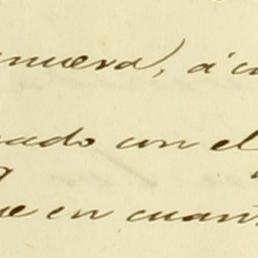 anueva, á co
ado con el
e en cuant